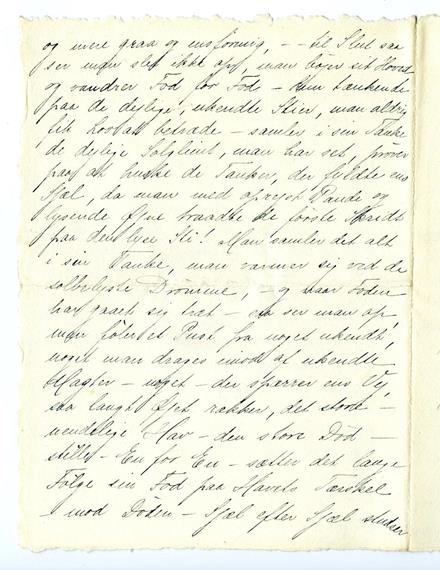 og mere graa og ensformig, – – til Slut saa
ser man slet ikke op, man bøjer sit Hoved
og vandrer Fod for Fod – kun tænkende
paa de dejlige, ukendte Stier, man aldrig
fik Lov at betræde – samler i sin Tanke
de dejlige Solglimt, man har set, prøver
paa at huske de Tanker, der fyldte ens
Sjæl, da man med oprejst Pande og
lysende Øjne traadte de første Skridt
paa den lyse Sti! Man samler det alt
i sin Tanke, man varmer sig ved de
solbelyste Drømme, – og naar Foden
har gaaet sig træt – saa ser man op
man føler et Pust fra noget ukendt,
noget man drages imod af ukendte
Magter – noget – der spærrer ens Vej,
saa langt Øjet rækker, det store –
uendelige Hav – den store Død –
stille – En for En – sætter det lange
Følge sin Fod paa Havets Tærskel
– mod Døden – Sjæl efter Sjæl